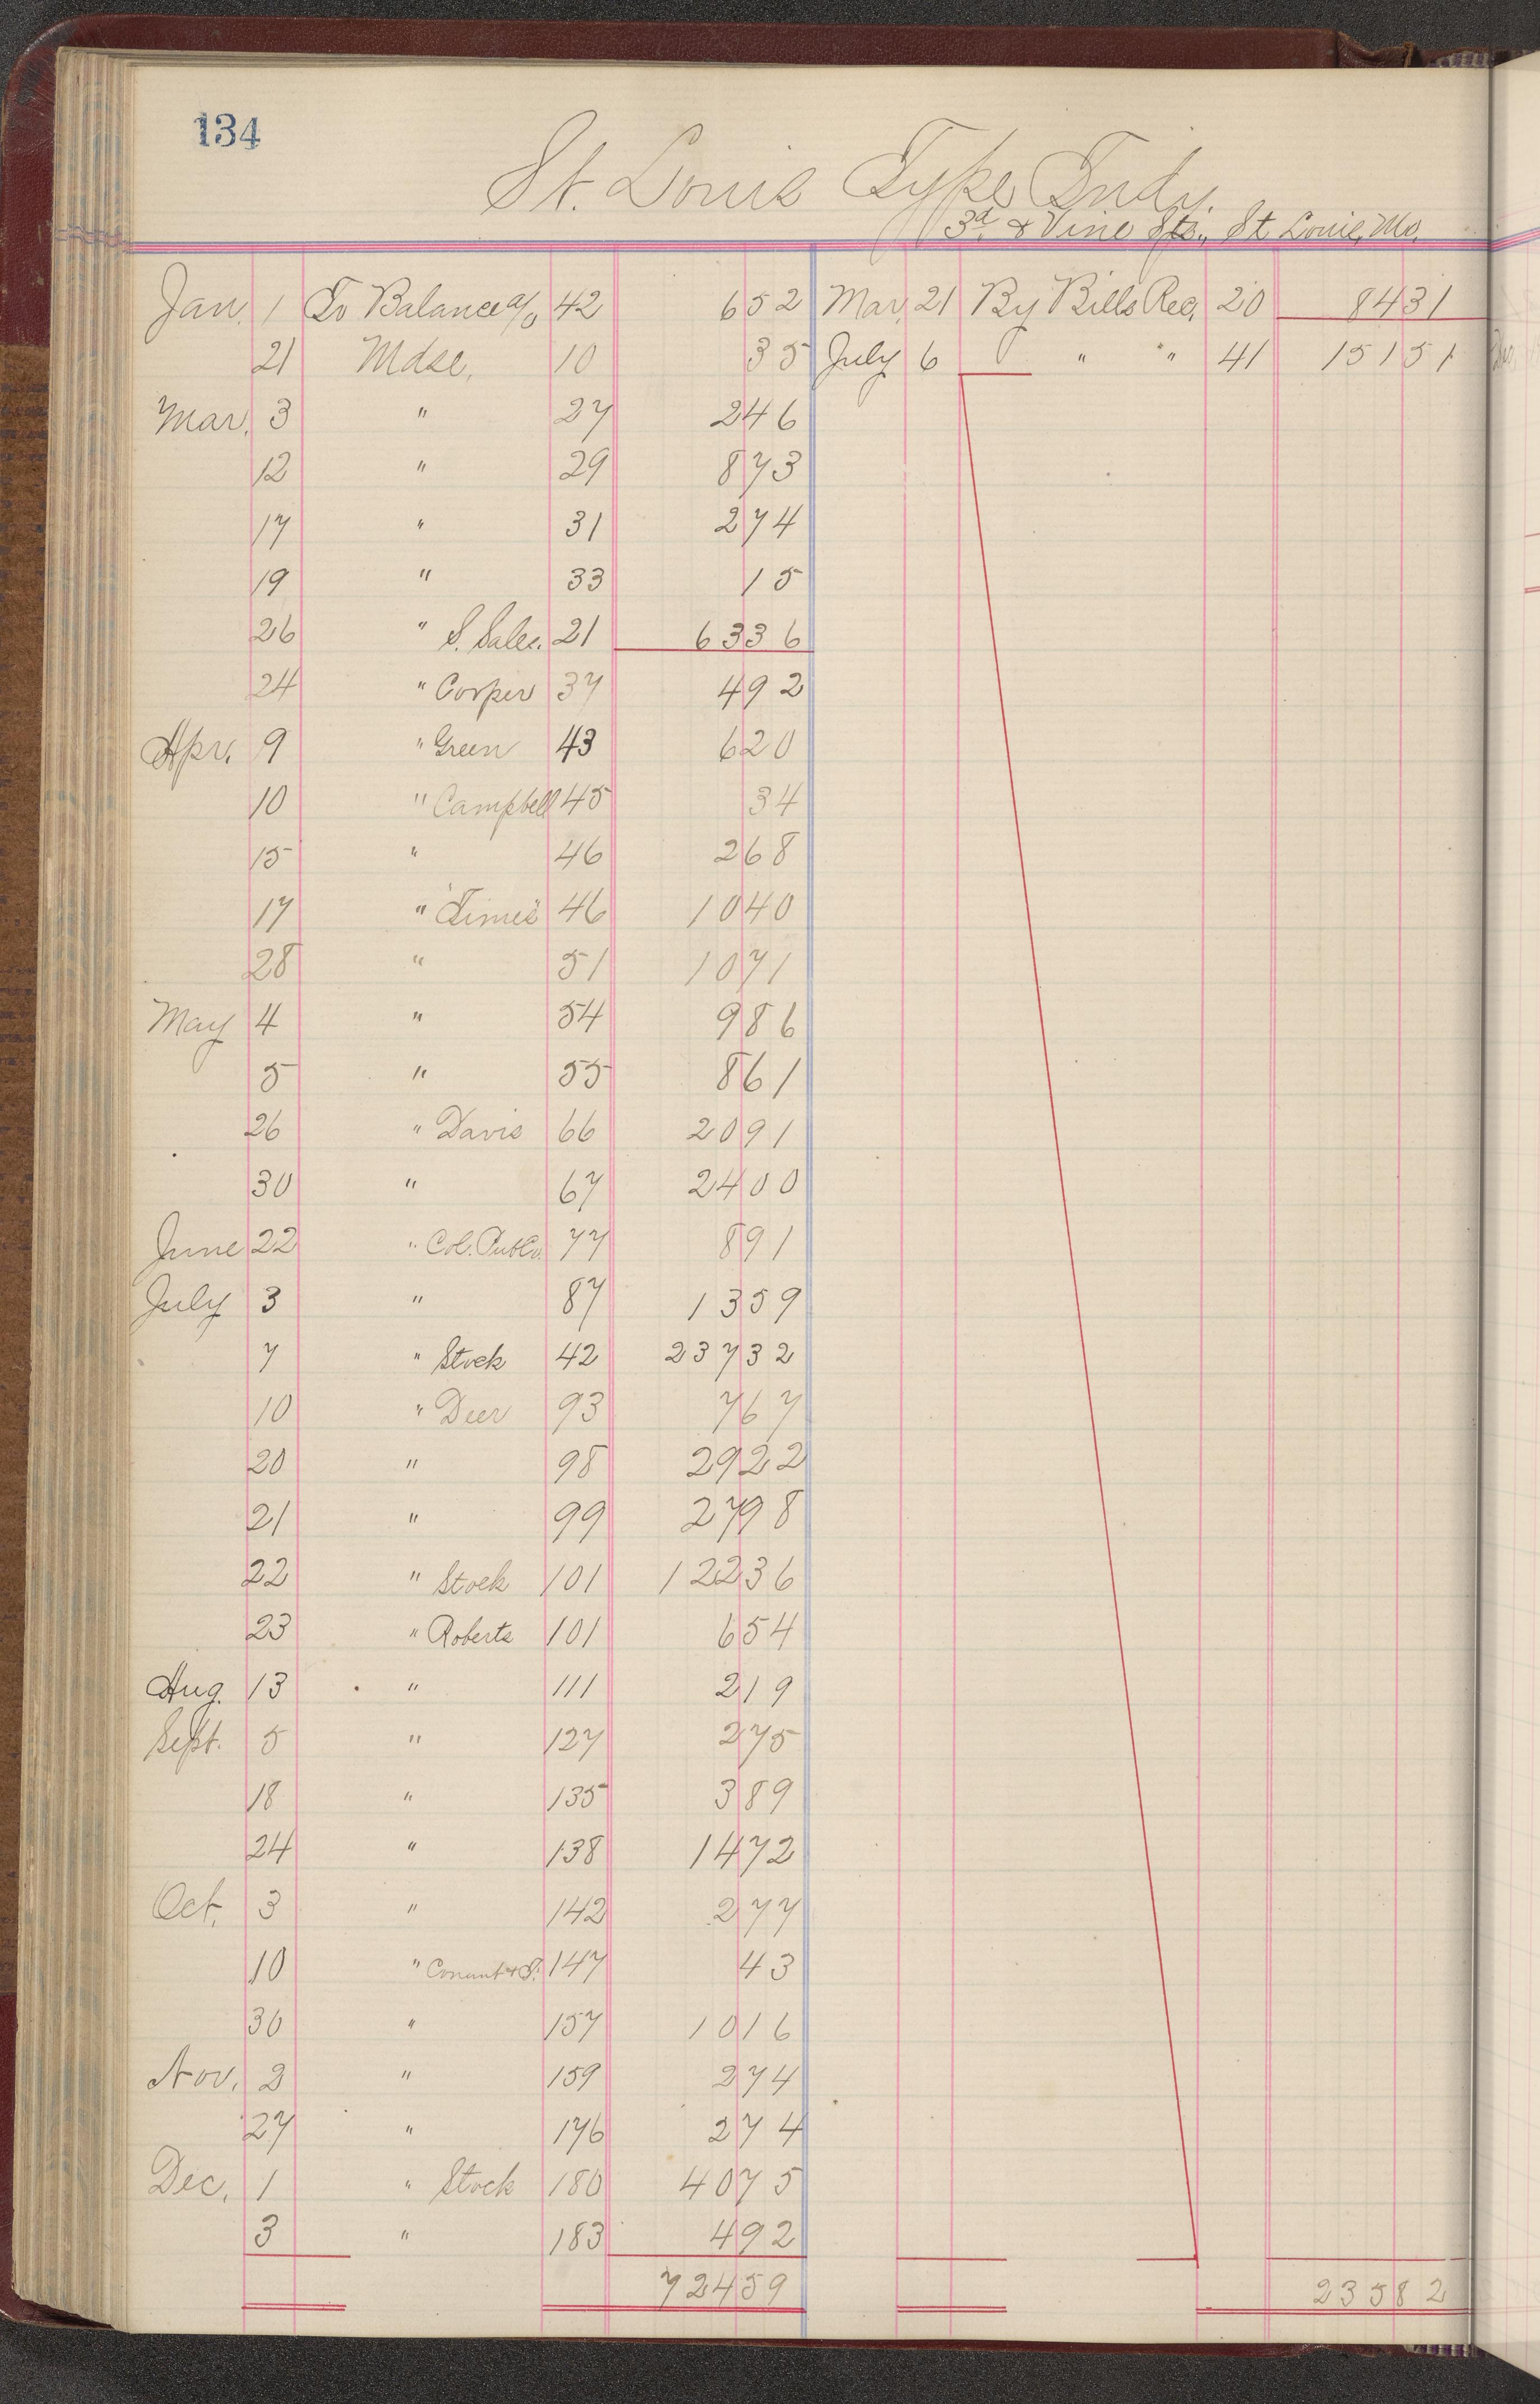 134
St. Louis Type Fndy.
3d & Vine Sts., St Louis, Mo.
Jan. 1 To Balance a/c 42 652 Mar. 21 By Bills Rec. 20 8431
21 Mdse. 10 35 July 6 " " 41 15151
Mar. 3 " 27 246
12 " 29 873
17 " 31 274
19 " 33 15
26 " S. Sales. 21 6336
24 " Cosper 37 492
Apr. 9 " Green 43 620
10 " Campbell 45 34
15 " 46 268
17 " "Times" 46 1040
28 " 51 1071
May 4 " 54 986
5 " 55 861
26 " Davis 66 2091
30 " 67 2400
June 22 " Col. Pub Co. 77 891
July 3 " 87 1359
7 " Stock 42 23732
10 " Deer 93 767
20 " 98 2922
21 " 99 2798
22 " Stock 101 12236
23 " Roberts 101 654
Aug. 13 " 111 219
Sept. 5 " 127 275
18 " 135 389
24 " 138 1472
Oct. 3 " 142 277
10 " Conant & S. 147 43
30 " 157 1016
Nov. 2 " 159 274
27 " 176 274
Dec. 1 " Stock 180 4075
3 " 183 492
72459 23582